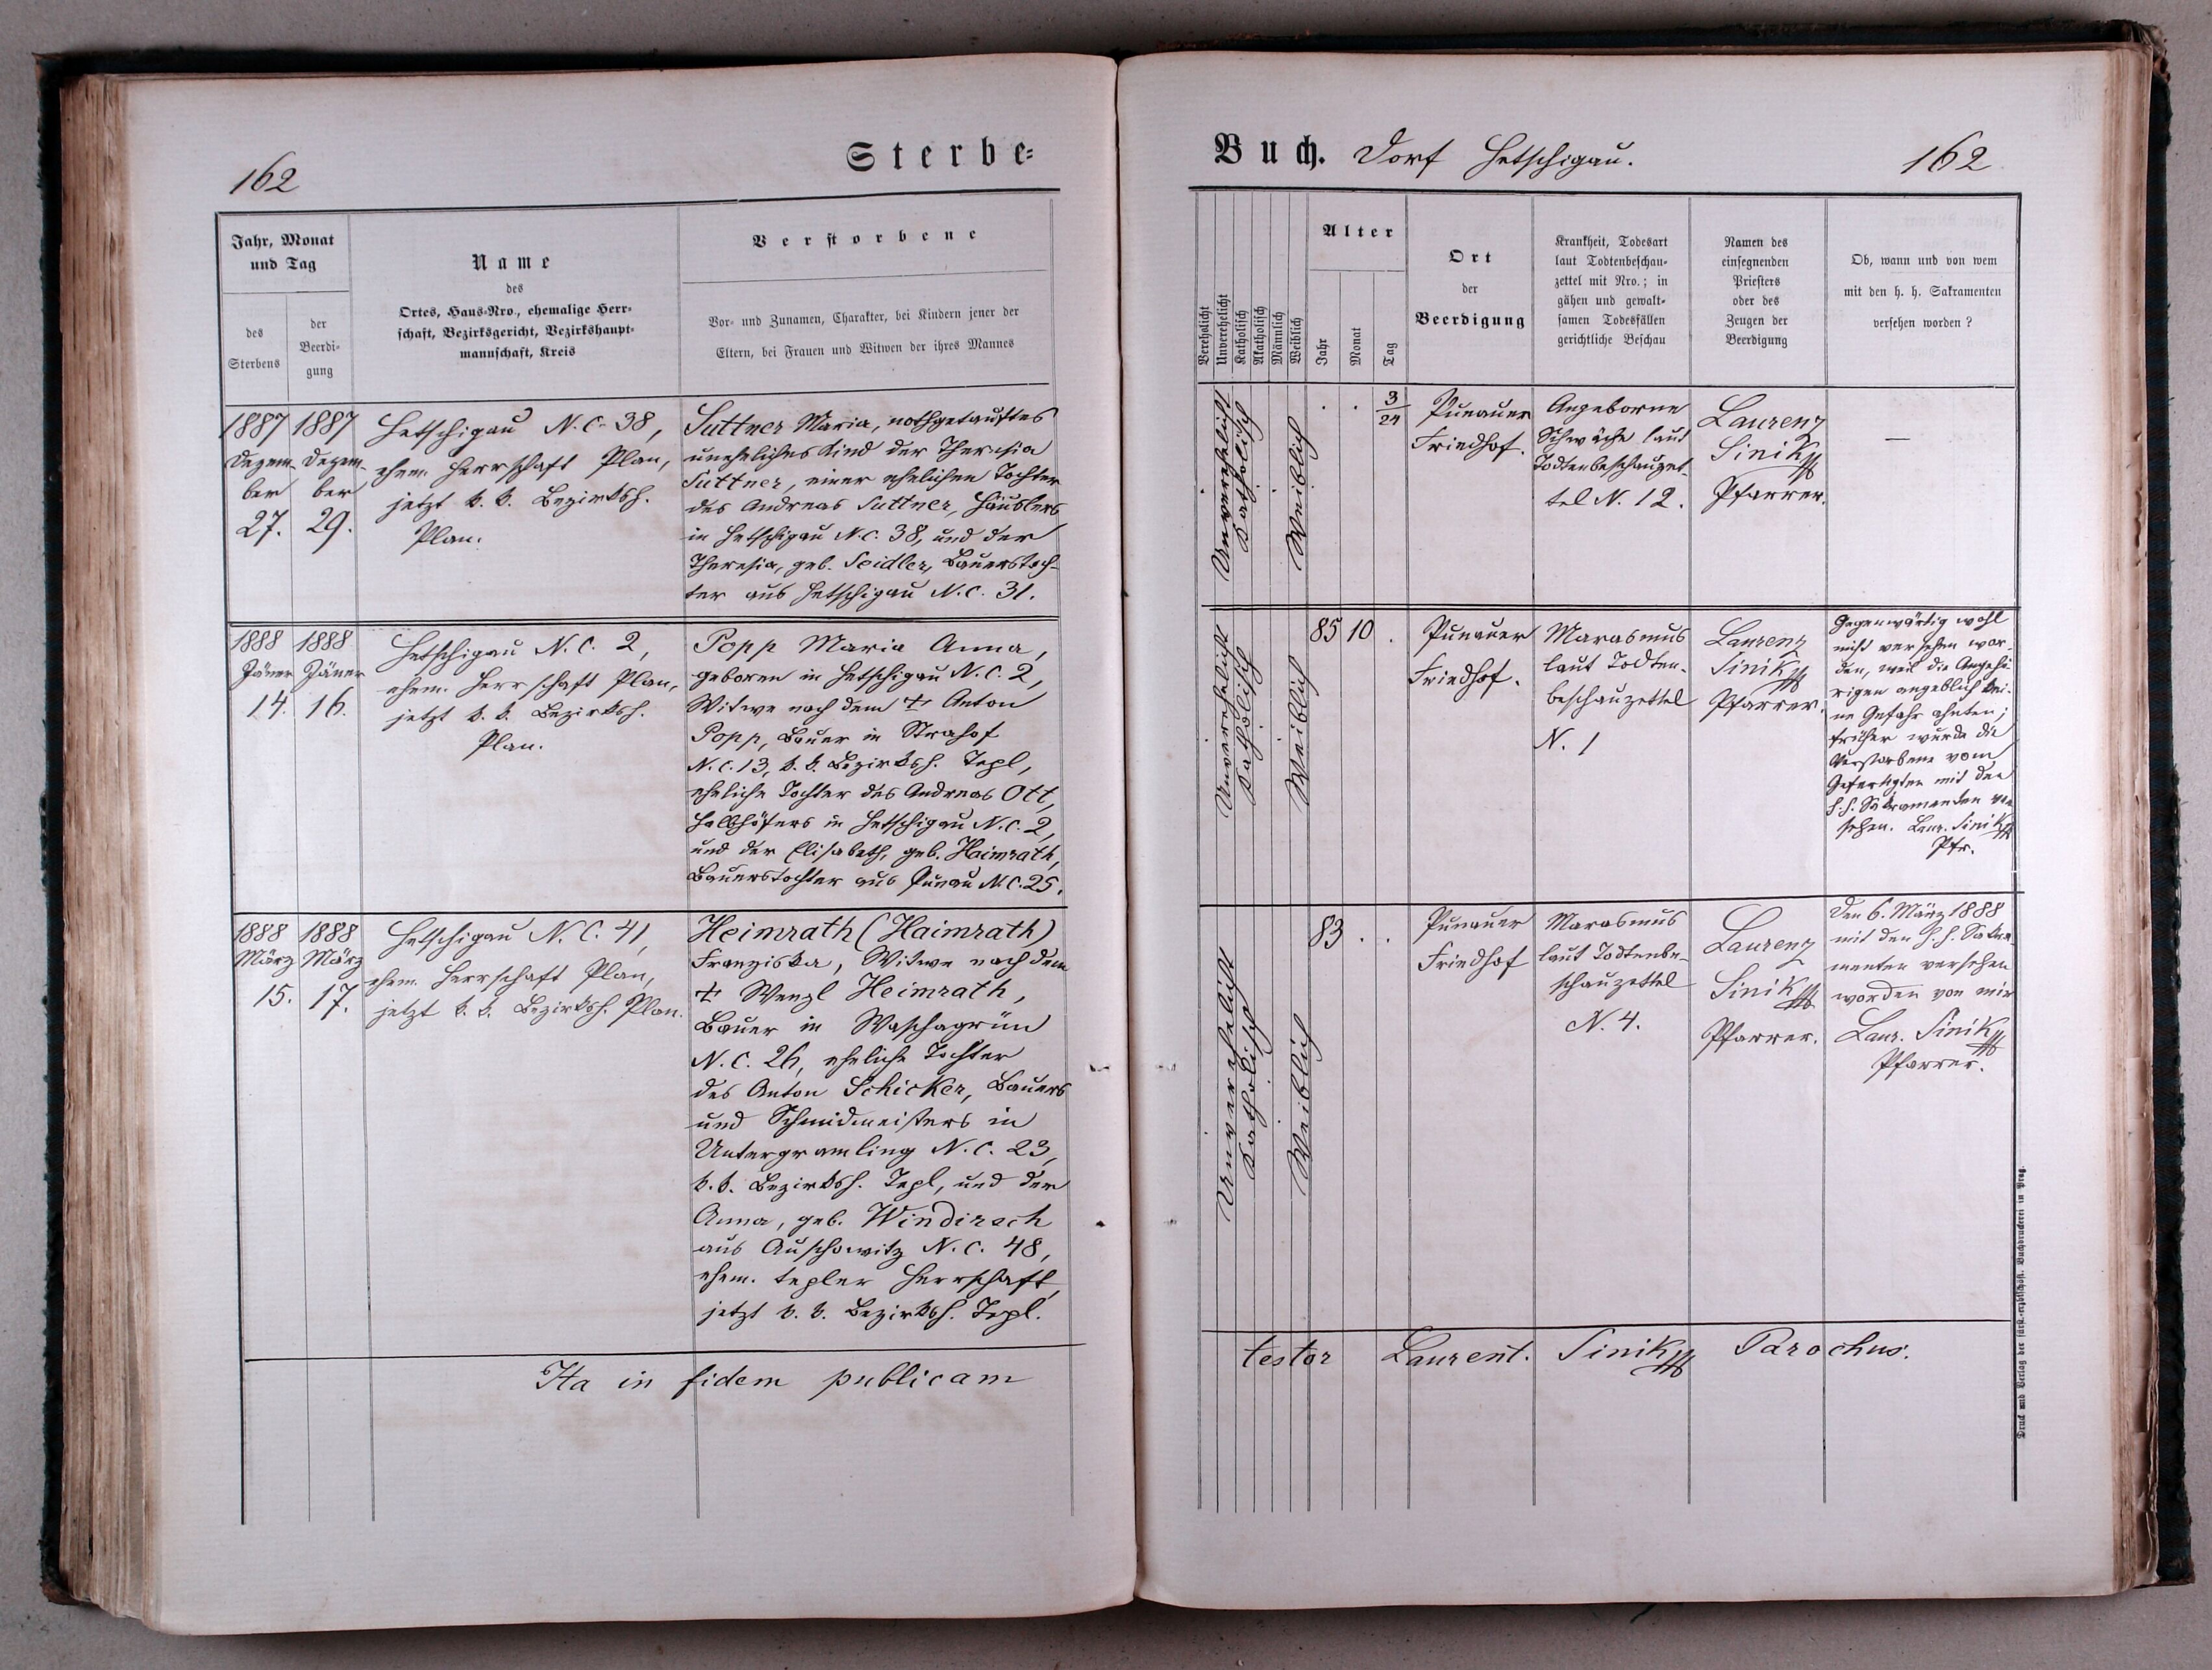 162
Sterbe-
Jahr, Monat
und Tag
des
Sterbens
der
Beerdi-
gung
Name
des
Ortes, Haus-Nro., ehemalige Herr-
schaft, Bezirksgericht, Bezirkshaupt-
mannschaft, Kreis
Verstorbene
Vor- und Zunamen, Charakter, bei Kindern jener der
Eltern, bei Frauen und Witwen der ihres Mannes
1887
Dezem-
ber
27.
1887
Dezem-
ber
29.
Hetschigau N. C. 38,
ehem. Herrschaft Plan,
jetzt k. k. Bezirksh.
Plan.
Suttner Maria, nothgetauftes
uneheliches Kind der Theresia
Suttner, einer ehelichen Tochter
des Andreas Suttner, Häuslers
in Hetschigau N. C. 38, und der
Theresia, geb. Seidler, Bauerstoch-
ter aus Hetschigau N. C. 31.
1888
Jäner
14.
1888
Jäner
16.
Hetschigau N. C. 2,
ehem. Herrschaft Plan,
jetzt k. k. Bezirksh.
Plan.
Popp Maria Anna,
geboren in Hetschigau N. C. 2,
Witwe nach dem † Anton
Popp, Bauer in Strahof
N. C. 13, k. k. Bezirksh. Tepl,
eheliche Tochter des Andreas Ott,
Halbhöfers in Hetschigau N. C. 2,
und der Elisabeth, geb. Haimrath,
Bauerstochter aus Punau N. C. 25.
1888
März
15.
1888
März
17.
Hetschigau N. C. 41,
ehem. Herrschaft Plan,
jetzt k. k. Bezirksh. Plan.
Heimrath (Haimrath)
Franziska, Witwe nach dem
† Wenzl Heimrath,
Bauer in Waschagrün
N. C. 26, eheliche Tochter
des Anton Schicker, Bauers
und Schmidmeisters in
Untergramling N. C. 23,
k. k. Bezirksh. Tepl, und der
Anna, geb. Windirsch
aus Auschowitz N. C. 48,
ehem. tepler Herrschaft,
jetzt k. k. Bezirksh. Tepl.
Ita in fidem publicam
Buch. Dorf Hetschigau.
162
Verehelicht
Unverehelicht
Katholisch
Akatholisch
Männlich
Weiblich
Alter
Jahr
Monat
Tag
Ort
der
Beerdigung
Krankheit, Todesart
laut Todtenbeschau-
zettel mit Nro.; in
gähen und gewalt-
samen Todesfällen
gerichtliche Beschau
Namen des
einsegnenden
Priesters
oder des
Zeugen der
Beerdigung
Ob, wann und von wem
mit den h. h. Sakramenten
versehen worden?
Unverehelicht
Katholisch
Weiblich
. . 3/24
Punauer
Friedhof.
Angeborne
Schwäche laut
Todtenbeschauzet-
tel N. 12.
Laurenz
Sinik
Pfarrer.
—
Unverehelicht
Katholisch
Weiblich
85 10 .
Punauer
Friedhof.
Marasmus
laut Todten-
beschauzettel
N. 1
Laurenz
Sinik
Pfarrer.
Gegenwärtig wohl
nicht versehen wor-
den, weil die Angehö-
rigen angeblich kei-
ne Gefahr ahnten;
früher wurde die
Verstorbene vom
Gefertigten mit den
h. h. Sakramenten ver
sehen. Laur. Sinik
Pfr.
Unverehelicht
Katholisch
Weiblich
83 . .
Punauer
Friedhof
Marasmus
laut Todtenbe-
schauzettel
N. 4.
Laurenz
Sinik
Pfarrer.
Den 6. März 1888
mit den h. h. Sakra
menten versehen
worden von mir
Laur. Sinik
Pfarrer.
testor Laurent. Sinik Parochus.
Druck und Verlag der fürst-erzbischöfl. Buchdruckerei in Prag.